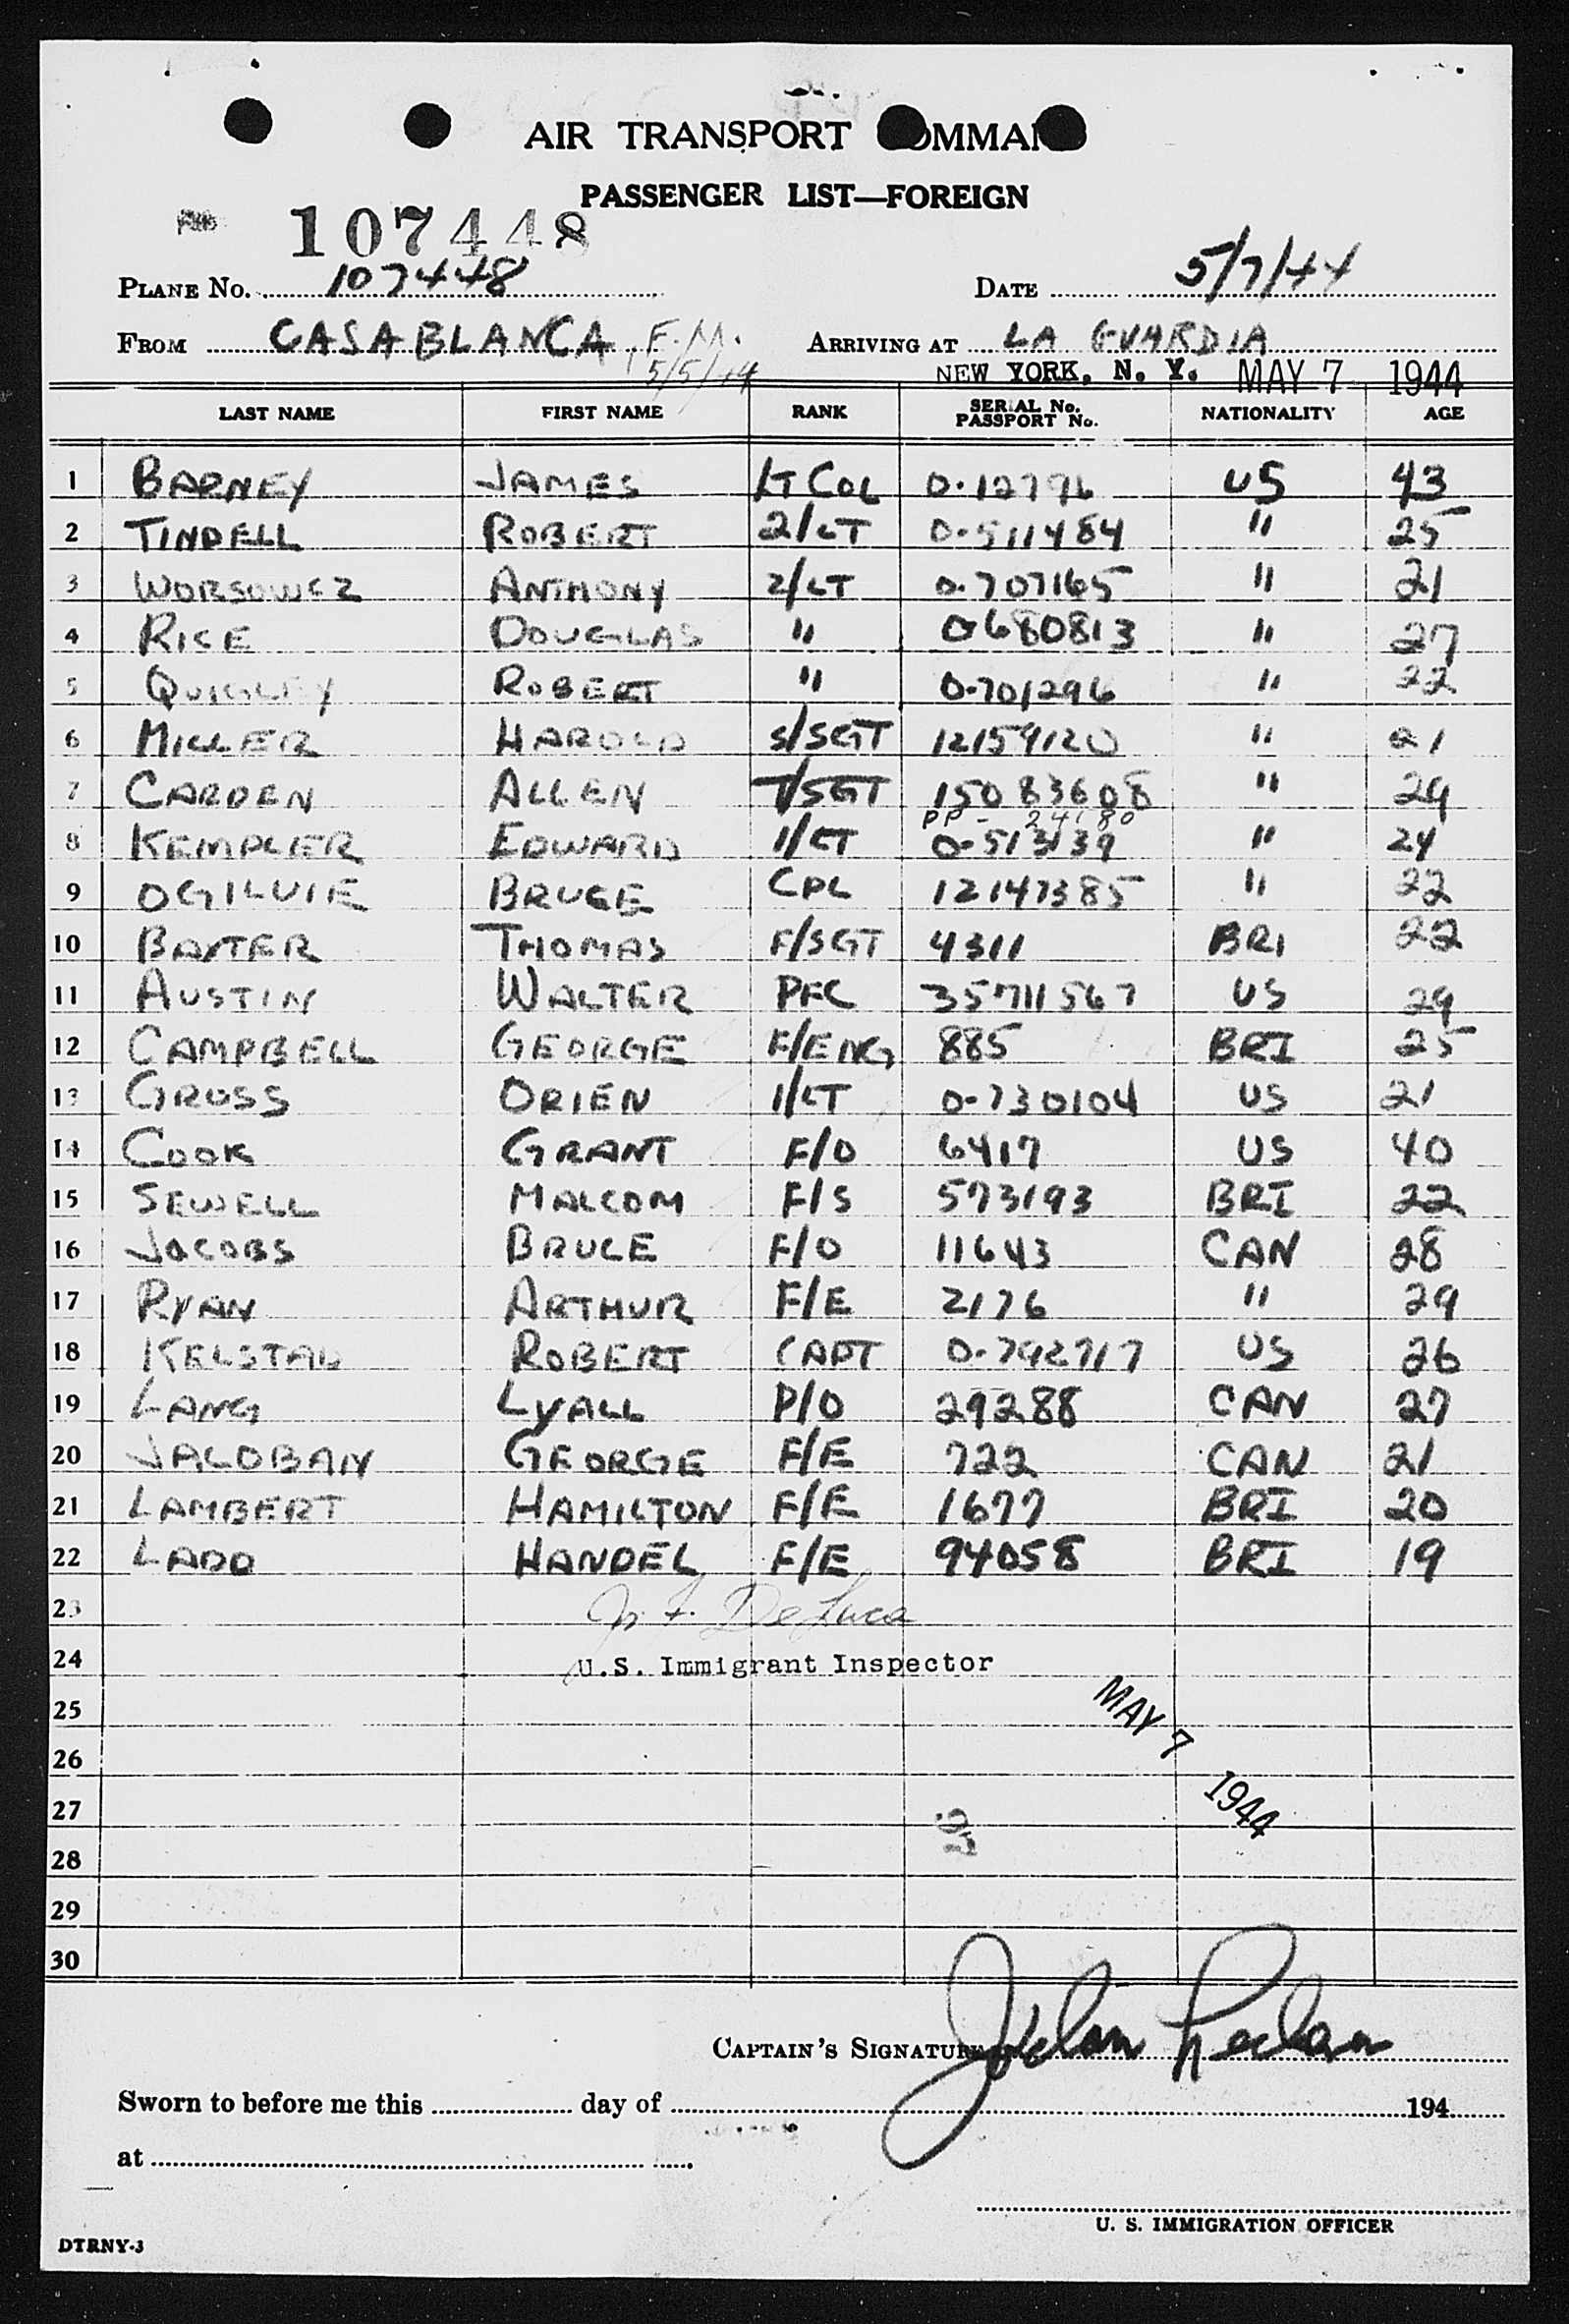 AIR TRANSPORT COMMAND
PASSENGER LIST—FOREIGN
107448
PLANE No. 107448 DATE 5/7/44
FROM CASABLANCA, F.M. ARRIVING AT LA GUARDIA
5/5/44 NEW YORK, N. Y. MAY 7 1944
LAST NAME FIRST NAME RANK SERIAL No. PASSPORT No. NATIONALITY AGE
1 BARNEY JAMES LT COL O-12796 US 43
2 TINDELL ROBERT 2/LT O-511484 " 25
3 WORSOWCZ ANTHONY 2/LT O-707165 " 21
4 RICE DOUGLAS " O-680813 " 27
5 QUIGLEY ROBERT " O-701296 " 22
6 MILLER HAROLD S/SGT 12159120 " 21
7 CARDEN ALLEN T/SGT 15083608 " 29
PP - 24180
8 KEMPLER EDWARD 1/LT O-513139 " 24
9 OGILVIE BRUCE CPL 12147385 " 22
10 BAXTER THOMAS F/SGT 4311 BRI 22
11 AUSTIN WALTER PFC 35711567 US 29
12 CAMPBELL GEORGE F/ENG 885 BRI 25
13 GROSS ORIEN 1/LT O-730104 US 21
14 COOK GRANT F/O 6417 US 40
15 SEWELL MALCOM F/S 573193 BRI 22
16 JACOBS BRUCE F/O 11643 CAN 28
17 RYAN ARTHUR F/E 2176 " 29
18 KELSTAD ROBERT CAPT O-792717 US 26
19 LANG LYALL P/O 29288 CAN 27
20 JACOBAN GEORGE F/E 722 CAN 21
21 LAMBERT HAMILTON F/E 1677 BRI 20
22 LADD HANDEL F/E 94058 BRI 19
23 De Luca
24 U.S. Immigrant Inspector
25 MAY 7
26
27 1944
28
29
30
CAPTAIN'S SIGNATURE John
Sworn to before me this day of 194
at
U. S. IMMIGRATION OFFICER
DTRNY-3